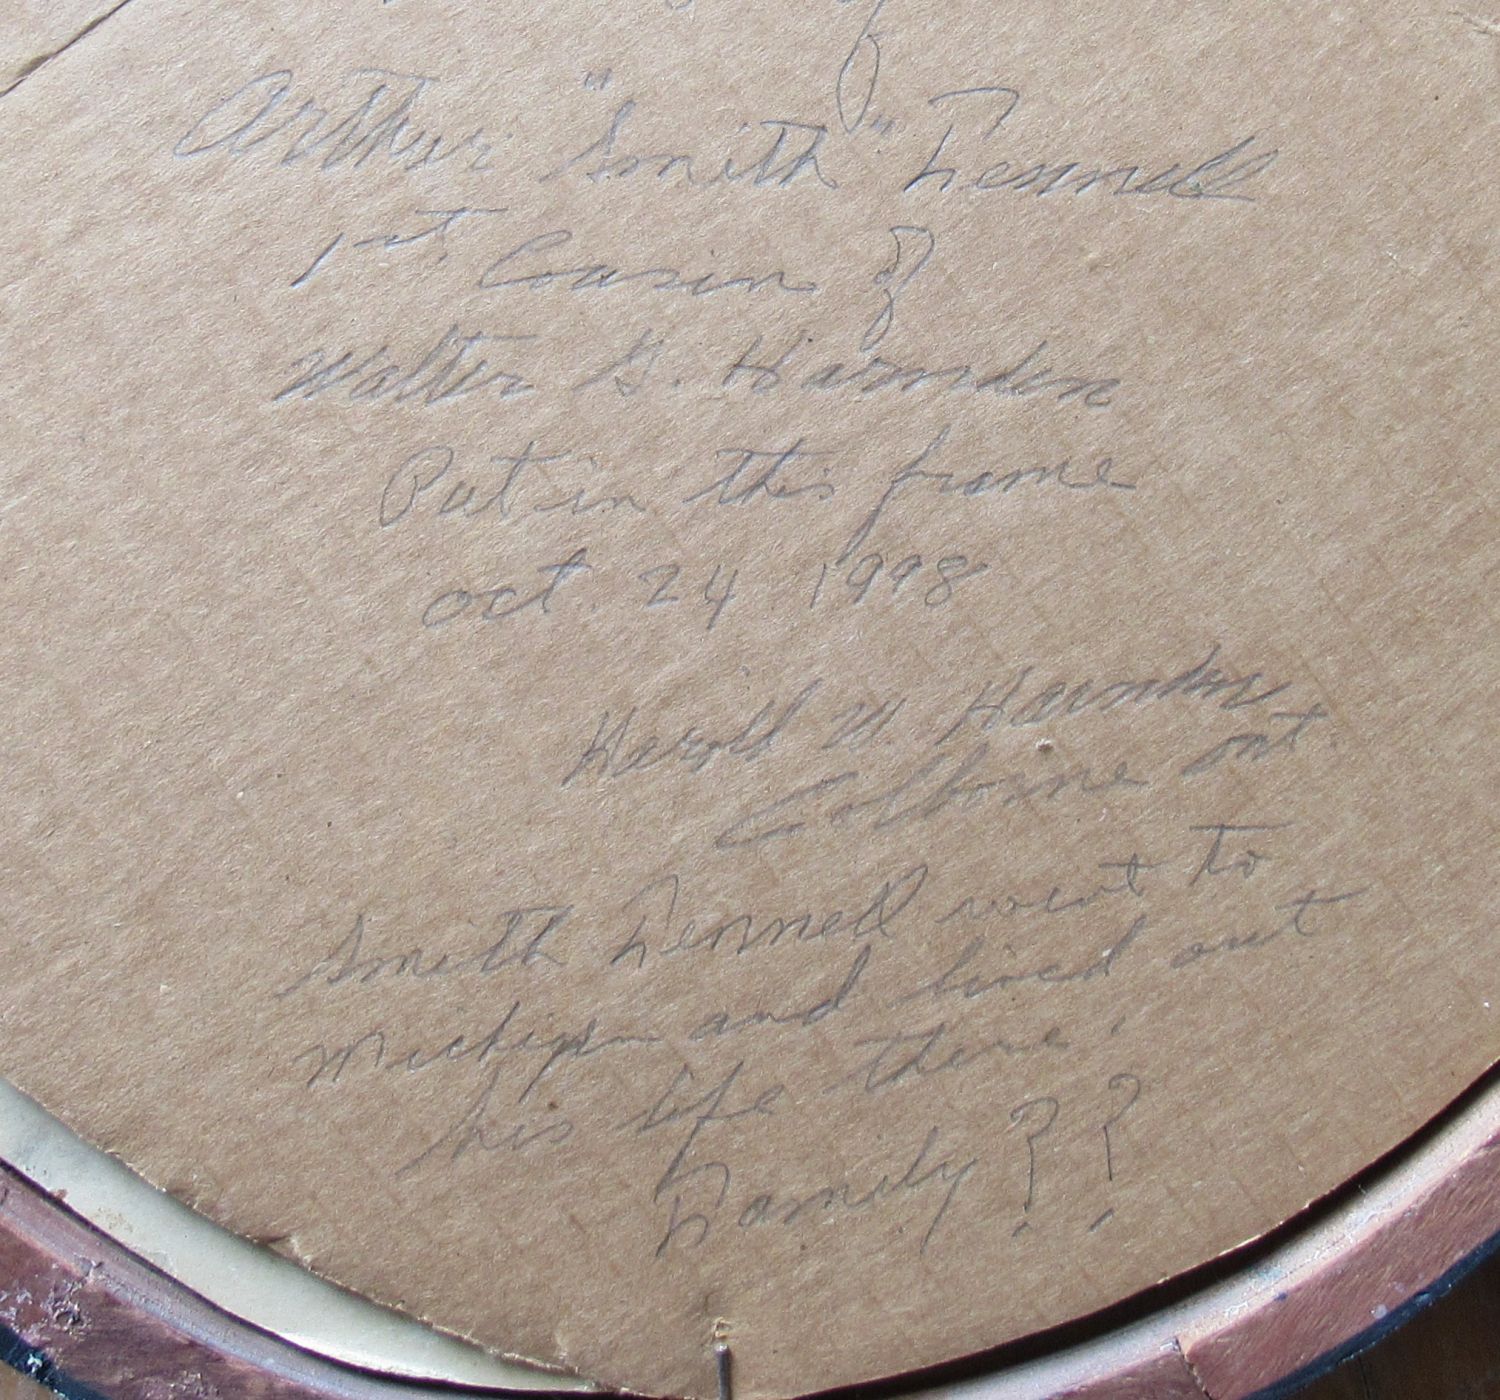 Arthur "Smith" Fennell
1st. Cousin of
Walter G. Harnden
Put in this frame
Oct. 24 1998
Harold W. Harnden
Colborne Ont.
Smith Fennell went to
Michigan and lived out
his life there.
Family ? ?